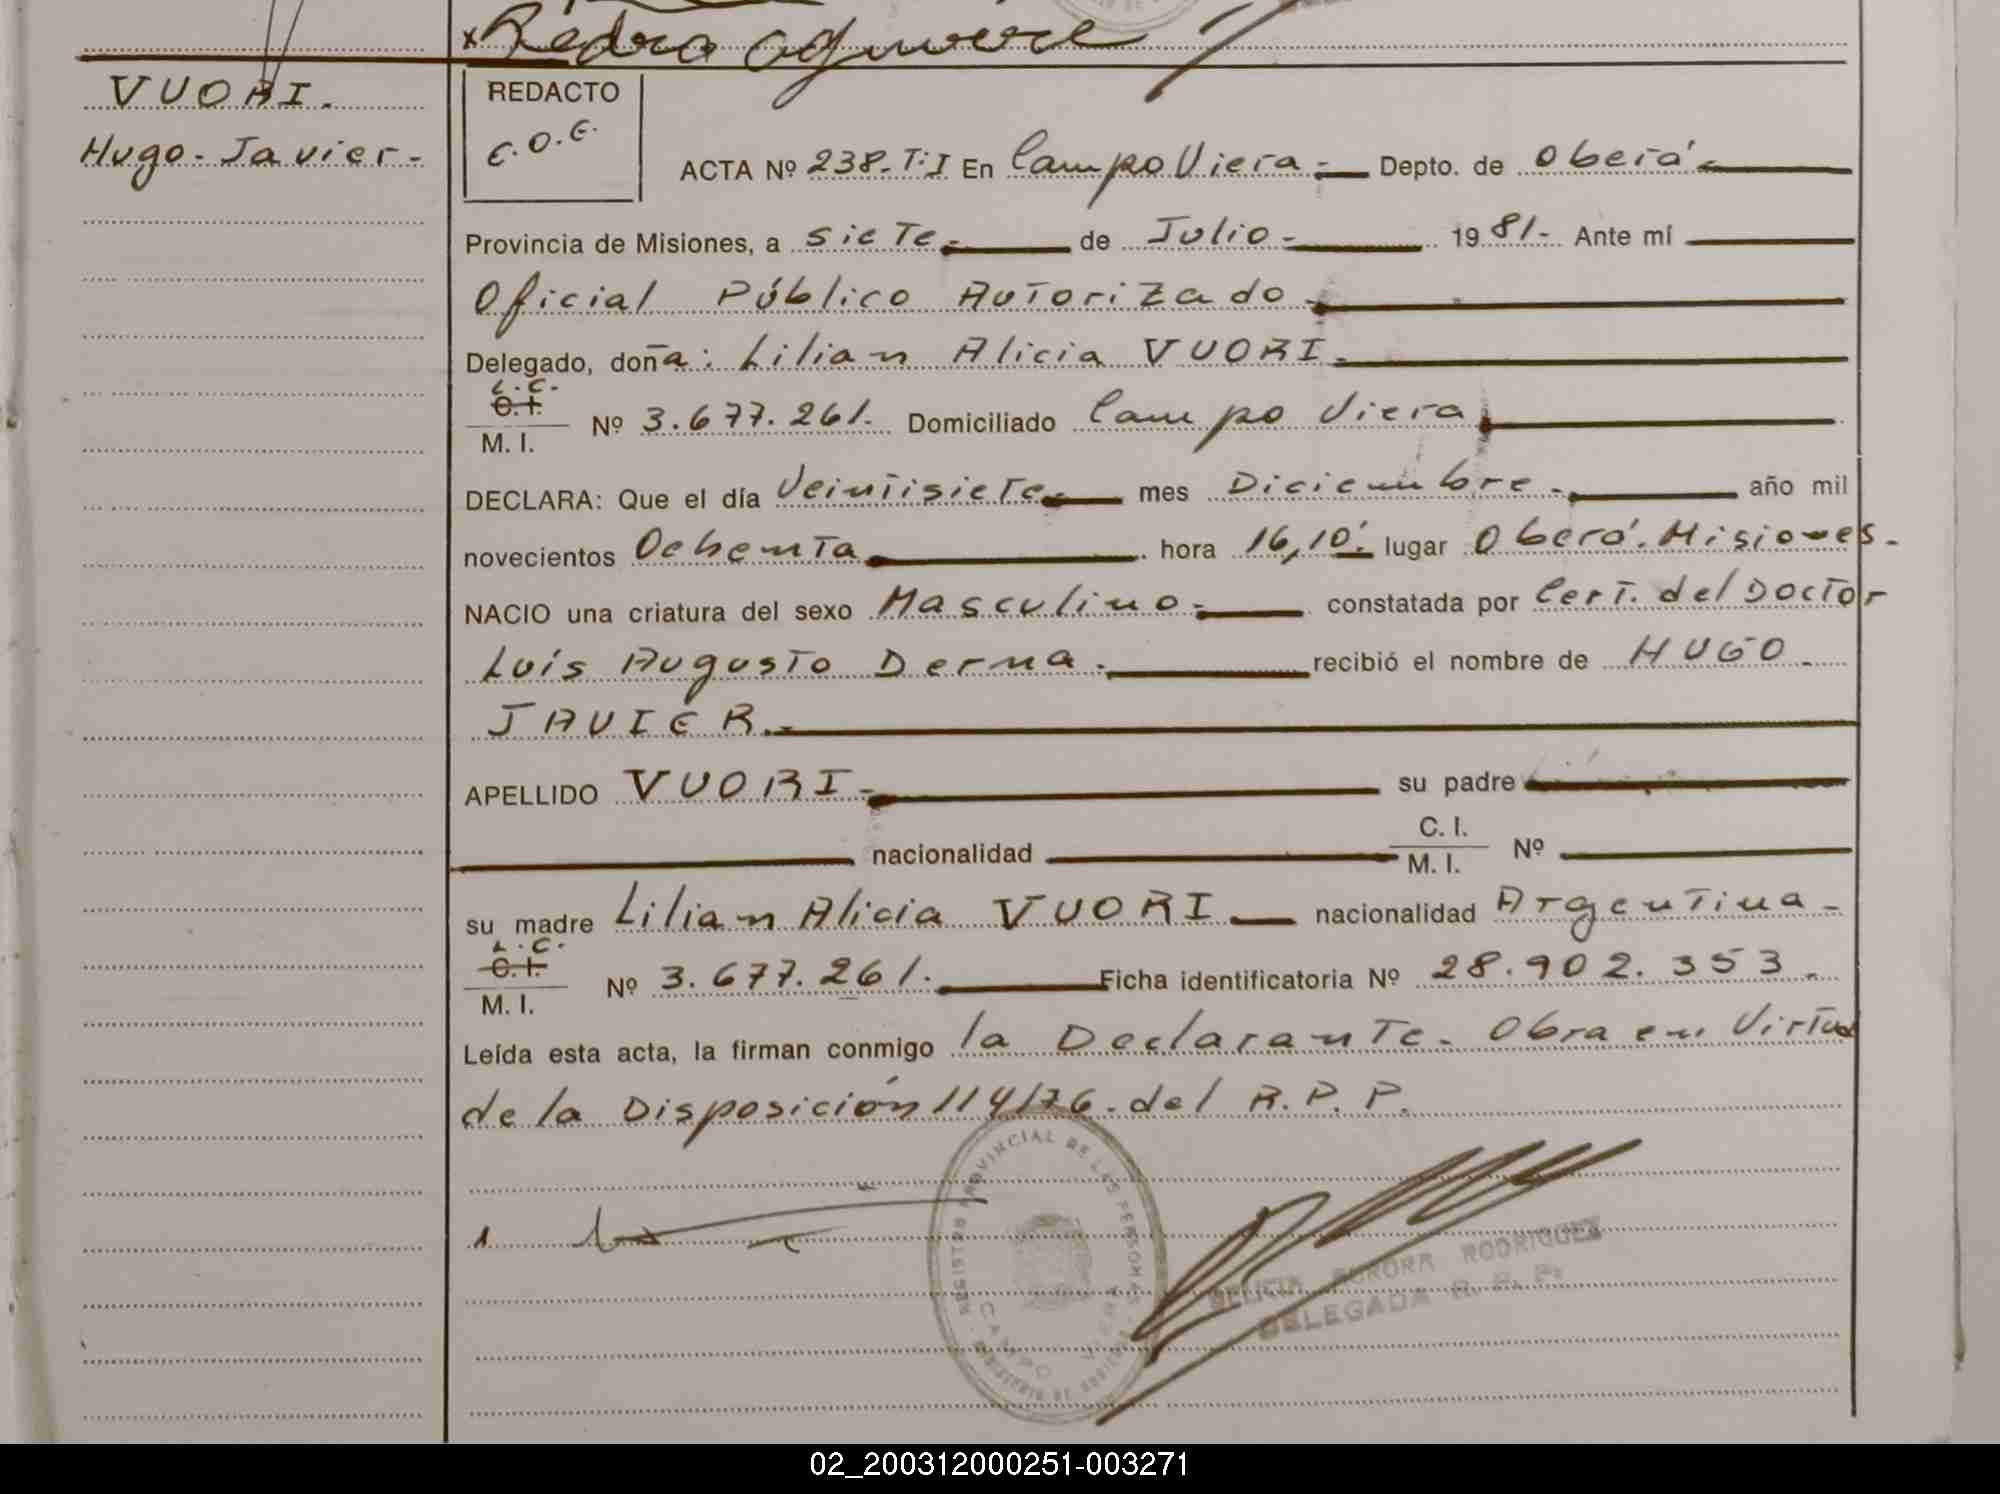 x Pedro
VUORI.
Hugo. Javier.-
REDACTO
C.O.E.
ACTA Nº 238.T:I En Campo Viera.- Depto. de Oberá.-
Provincia de Misiones, a sieTe.- de Julio.- 1981.- Ante mí
Oficial Público AuTorizado.-
Delegado, doña: Lilian Alicia VUORI.-
L.C.
C.I.
M. I.
Nº 3.677.261. Domiciliado Campo Viera.-
DECLARA: Que el día VeinTisieTe.- mes Diciembre.- año mil
novecientos OchenTa.- hora 16,10'. lugar Oberá. Misiones.-
NACIO una criatura del sexo Masculino.- constatada por CerT. del DocTor
Luís AugusTo Derna.- recibió el nombre de HUGO
JAVIER.-
APELLIDO VUORI.- su padre
nacionalidad C. I.
M. I.
Nº
su madre Lilian Alicia VUORI nacionalidad ArgenTina.-
L.C.
C.I.
M. I.
Nº 3.677.261. Ficha identificatoria Nº 28.902.353.
Leída esta acta, la firman conmigo la DeclaranTe. Obra en VirTud
de la Disposición 114/76. del R.P.P.
REGISTRO PROVINCIAL DE LAS PERSONAS
CAMPO VIERA
MINISTERIO DE GOBIERNO
DELICIA AURORA RODRIGUEZ
DELEGADA R. P. P.
02_200312000251-003271